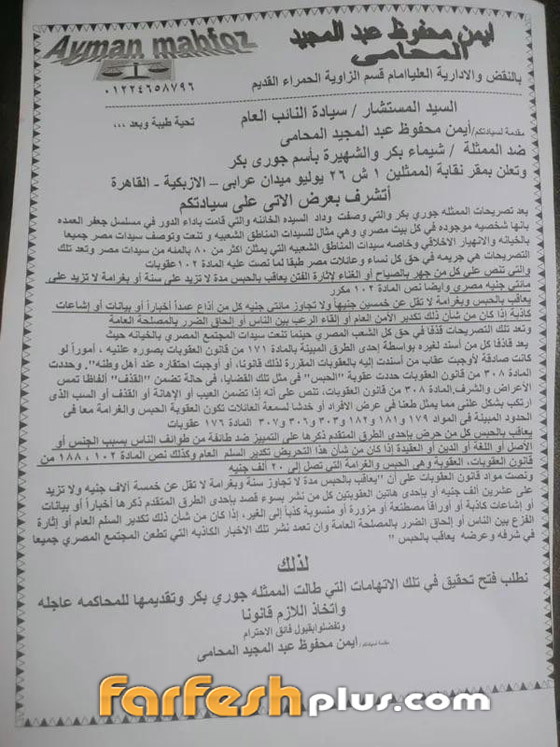 Ayman mahfoz
ايمن محفوظ عبد المجيد
المحامى
بالنقض والادارية العلياامام قسم الزاوية الحمراء القديم
٠١٢٢٤٦٥٨٧٩٦
السيد المستشار / سيادة النائب العام
تحية طيبة وبعد ...
مقدمة لسيادتكم/ أيمن محفوظ عبد المجيد المحامى
ضد الممثلة / شيماء بكر والشهيرة بأسم جورى بكر
وتعلن بمقر نقابة الممثلين ١ ش ٢٦ يوليو ميدان عرابى – الازبكية - القاهرة
أتشرف بعرض الاتى على سيادتكم
بعد تصريحات الممثله جوري بكر والتي وصفت وداد السيده الخائنه والتي قامت باداء الدور في مسلسل جعفر العمده
بانها شخصيه موجوده في كل بيت مصري وهي مثال للسيدات المناطق الشعبيه و تنعت وتوصف سيدات مصر جميعا
بالخيانه والانهيار الاخلاقي وخاصه سيدات المناطق الشعبيه التي يمثلن اكثر من ٨٠ بالمنه من سيدات مصر وتعد تلك
التصريحات هي جريمه في حق كل نساء وعائلات مصر طبقا لما نصت عليه الماده ١٠٢ عقوبات
والتي تنص على كل من جهر بالصياح أو الغناء لإثارة الفتن يعاقب بالحبس مدة لا تزيد على سنة أو بغرامة لا تزيد على
مائتي جنيه مصري وايضا نص المادة ١٠٢ مكرر
يعاقب بالحبس وبغرامة لا تقل عن خمسين جنيهاً ولا تجاوز مائتي جنيه كل من أذاع عمداً أخباراً أو بيانات أو إشاعات
كاذبة إذا كان من شأن ذلك تكدير الأمن العام أو إلقاء الرعب بين الناس أو إلحاق الضرر بالمصلحة العامة
وتعد تلك التصريحات قذفا في حق كل الشعب المصري حينما تنعت سيدات المجتمع المصري بالخيانه حيث
يعد قاذفا كل من أسند لغيره بواسطة إحدى الطرق المبينة بالمادة ١٧١ من قانون العقوبات بصوره علنيه، أموراً لو
كانت صادقة لأوجبت عقاب من أسندت إليه بالعقوبات المقررة لذلك قانونا، أو أوجبت احتقاره عند أهل وطنه". وحددت
المادة ٣٠٨ من قانون العقوبات حددت عقوبة "الحبس" في مثل تلك القضايا، في حالة تضمن "القذف" ألفاظا تمس
الأعراض والشرف.المادة ٣٠٨ من قانون العقوبات، تنص على أنه إذا تضمن العيب أو الإهانة أو القذف أو السب الذى
ارتكب بشكل علنى مما يمثل طعنا فى عرض الأفراد أو خدشا لسمعة العائلات تكون العقوبة الحبس والغرامة معا فى
الحدود المبينة فى المواد ١٧٩ و١٨١ و١٨٢ و٣٠٣ و٣٠٦ و٣٠٧ المادة ١٧٦ عقوبات
يعاقب بالحبس كل من حرض بإحدى الطرق المتقدم ذكرها على التمييز ضد طائفة من طوائف الناس بسبب الجنس أو
الأصل أو اللغة أو الدين أو العقيدة إذا كان من شأن هذا التحريض تكدير السلم العام وكذلك نص المادة ١٠٢ ، ١٨٨ من
قانون العقوبات، العقوبة وهي الحبس والغرامة التي تصل إلى ٢٠ ألف جنيه
ونصت مواد قانون العقوبات على أن "يعاقب بالحبس مدة لا تجاوز سنة وبغرامة لا تقل عن خمسة آلاف جنيه ولا تزيد
على عشرين ألف جنيه أو بإحدى هاتين العقوبتين كل من نشر بسوء قصد بإحدى الطرق المتقدم ذكرها أخباراً أو بيانات
أو إشاعات كاذبة أو أوراقاً مصطنعة أو مزورة أو منسوبة كذباً إلى الغير، إذا كان من شأن ذلك تكدير السلم العام أو إثارة
الفزع بين الناس أو إلحاق الضرر بالمصلحة العامة وان تعمد نشر تلك الاخبار الكاذبه التي تطعن المجتمع المصري جميعا
في شرفه وعرضه يعاقب بالحبس "
لذلك
نطلب فتح تحقيق في تلك الاتهامات التي طالت الممثله جوري بكر وتقديمها للمحاكمه عاجله
واتخاذ اللازم قانونا
وتفضلوابقبول فائق الاحترام
مقدمة لسيادتكم/ أيمن محفوظ عبد المجيد المحامى
farfeshplus.com